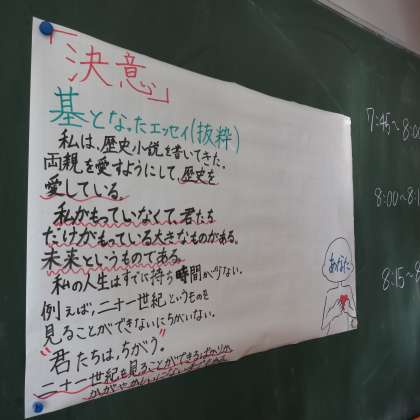 「決意」
基となったエッセイ(抜粋)
私は、歴史小説を書いてきた。
両親を愛すようにして、歴史を
愛している。
私がもっていなくて、君たち
だけがもっている大きなものがある。
未来というものである。
私の人生はすでに持つ時間が少ない。
例えば、二十一世紀というものを
見ることができないにちがいない。
"君たちは、ちがう。
二十一世紀を見ることができるばかりか、
かがやかしい
あなた
7:45~8:0
8:00~8:1
8:15~8